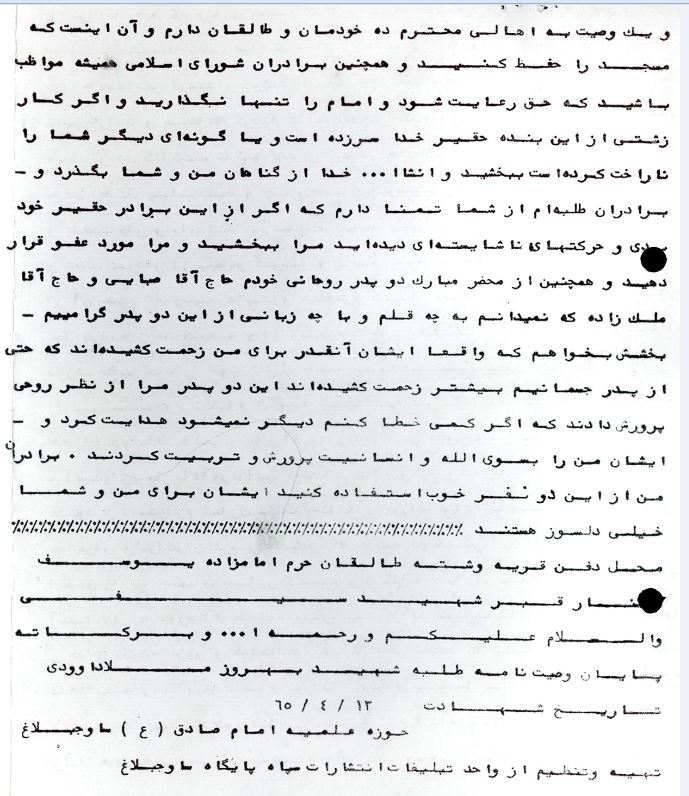 و یک وصیت به اهالی محترم ده خودمان و طالقان دارم و آن اینست که
مسجد را حفظ کنید و همچنین برادران شورای اسلامی همیشه مواظب
باشید که حق رعایت شود و امام را تنها نگذارید و اگر کار
زشتی از این بنده حقیر خدا سرزده است و یا گونه‌ای دیگر شما را
ناراخت کرده‌است ببخشید و انشاا... خدا از گناهان من و شما بگذرد و -
برادران طلبه‌ام از شما تمنا دارم که اگر از این برادر حقیر خود
بدی و حرکتهای ناشایسته‌ای دیده‌اید مرا ببخشید و مرا مورد عفو قرار
دهید و همچنین از محضر مبارک دو پدر روحانی خودم حاج آقا صبایی و حاج آقا
ملک زاده که نمیدانم به چه قلم و با چه زبانی از این دو پدر گرامییم -
بخشش بخواهم که واقعا ایشان آنقدر برای من زحمت کشیده‌اند که حتی
از پدر جسمانیم بیشتر زحمت کشیده‌اند این دو پدر مرا از نظر روحی
پرورش دادند که اگر کمی خطا کنم دیگر نمیشود هدایت کرد و -
ایشان من را بسوی الله و انسانیت پرورش و تربیت کردند . برادران
من از این دو نفر خوب استفاده کنید ایشان برای من و شما
خیلی دلسوز هستند ٪٪٪٪٪٪٪٪٪٪٪٪٪٪٪٪٪٪٪٪٪٪٪٪٪٪٪٪٪٪
محل دفن قریه وشته طالقان حرم امامزاده یوسف
کنار قبر شهید سیفی
والسلام علیکم و رحمه ا... و برکاته
پایان وصیت نامه طلبه شهید بهروز ملاداوودی
تاریخ شهادت ۱۳ / ٤ / ٦٥
حوزه علمیه امام صادق ( ع ) ساوجبلاغ
تهیه وتنظیم از واحد تبلیغات انتشارات سپاه پایگاه ساوجبلاغ